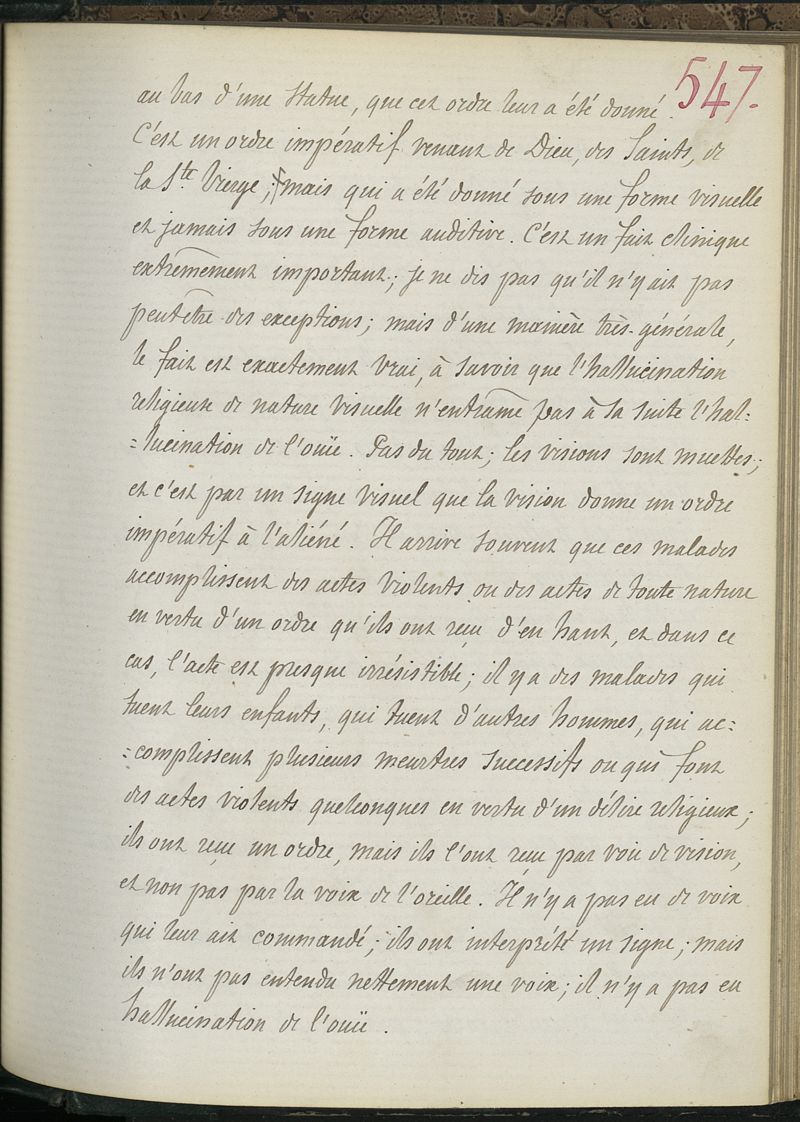 547.
au bas d'une Statue, que cet ordre leur a été donné.
C'est un ordre impératif venant de Dieu, des Saints, de
la Ste Vierge; mais qui a été donné sous une forme visuelle
et jamais sous une forme auditive. C'est un fait clinique
extrêmement important; je ne dis pas qu'il n'y ait pas
peutêtre des exceptions; mais d'une manière très-générale,
le fait est exactement vrai, à savoir que l'hallucination
religieuse de nature visuelle n'entraîne pas à sa suite l'hal-
-lucination de l'ouïe. Pas du tout; les visions sont muettes;
et c'est par un signe visuel que la vision donne un ordre
impératif à l'aliéné. Il arrive souvent que ces malades
accomplissent des actes violents ou des actes de toute nature
en vertu d'un ordre qu'ils ont reçu d'en haut, et dans ce
cas, l'acte est presque irrésistible; il y a des malades qui
tuent leurs enfants, qui tuent d'autres hommes, qui ac=
=complissent plusieurs meurtres successifs ou qui font
des actes violents quelconques en vertu d'un délire religieux;
ils ont reçu un ordre, mais ils l'ont reçu par voie de vision,
et non pas par la voix de l'oreille. Il n'y a pas eu de voix
qui leur ait commandé; ils ont interprété un signe; mais
ils n'ont pas entendu nettement une voix; il n'y a pas eu
hallucination de l'ouïe.